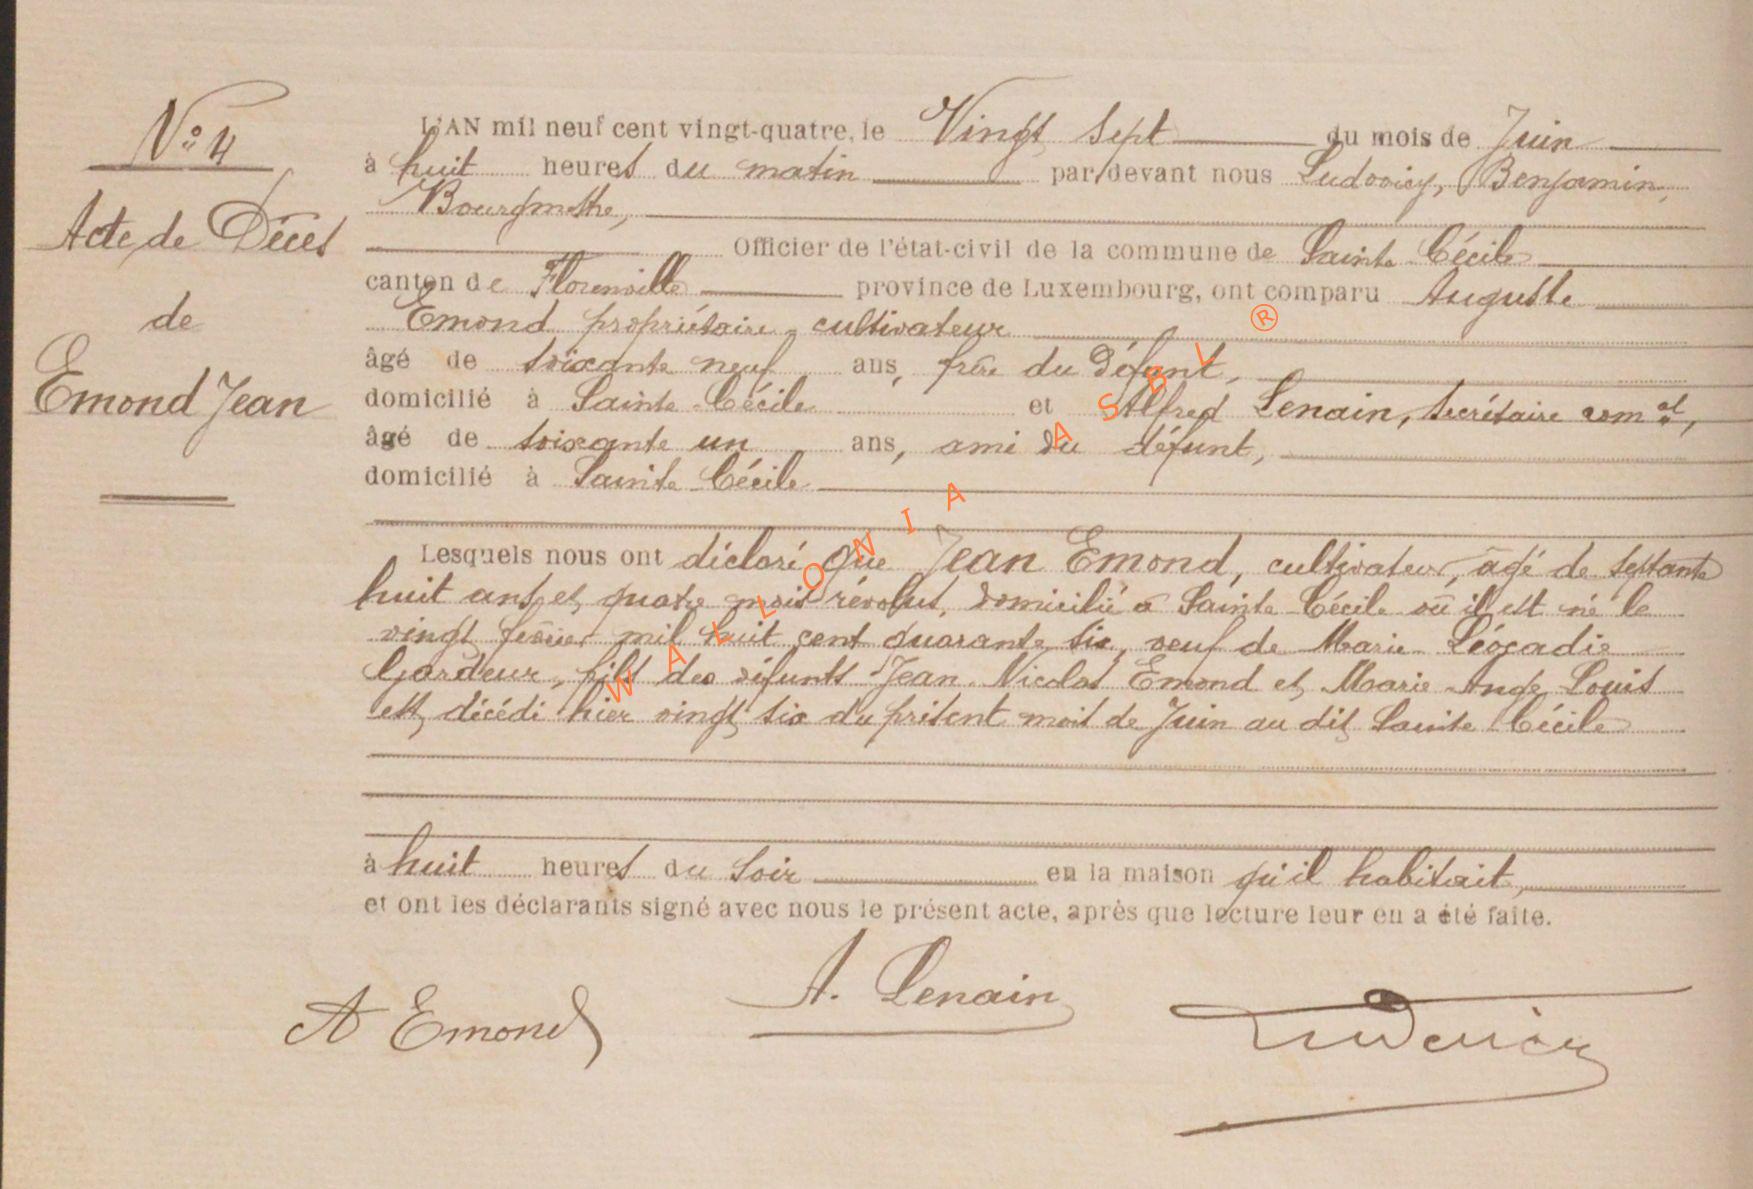 N° 4
Acte de Décès
de
Emond Jean
L'AN mil neuf cent vingt-quatre, le Vingt sept du mois de Juin
à huit heures du matin par devant nous Ludovicy, Benjamin,
Bourgmestre,
Officier de l'état-civil de la commune de Sainte Cécile
canton de Florenville province de Luxembourg, ont comparu Auguste
Emond propriétaire-cultivateur
âgé de soixante neuf ans, frère du défunt,
domicilié à Sainte-Cécile et Alfred Lenain, secrétaire com.al,
âgé de soixante un ans, ami du défunt,
domicilié à Sainte Cécile
Lesquels nous ont déclaré que Jean Emond, cultivateur, âgé de septante
huit ans et quatre mois révolus, domicilié à Sainte-Cécile où il est né le
vingt février mil huit cent quarante six, veuf de Marie Léocadie
Gardeur, fils des défunts Jean Nicolas Emond et Marie-Ange Louis
est décédé hier vingt six du présent mois de Juin au dit Sainte Cécile
à huit heures du soir en la maison qu'il habitait,
et ont les déclarants signé avec nous le présent acte, après que lecture leur en a été faite.
A Emond
A. Lenain
Ludovicy
WALLONIA ASBL ®